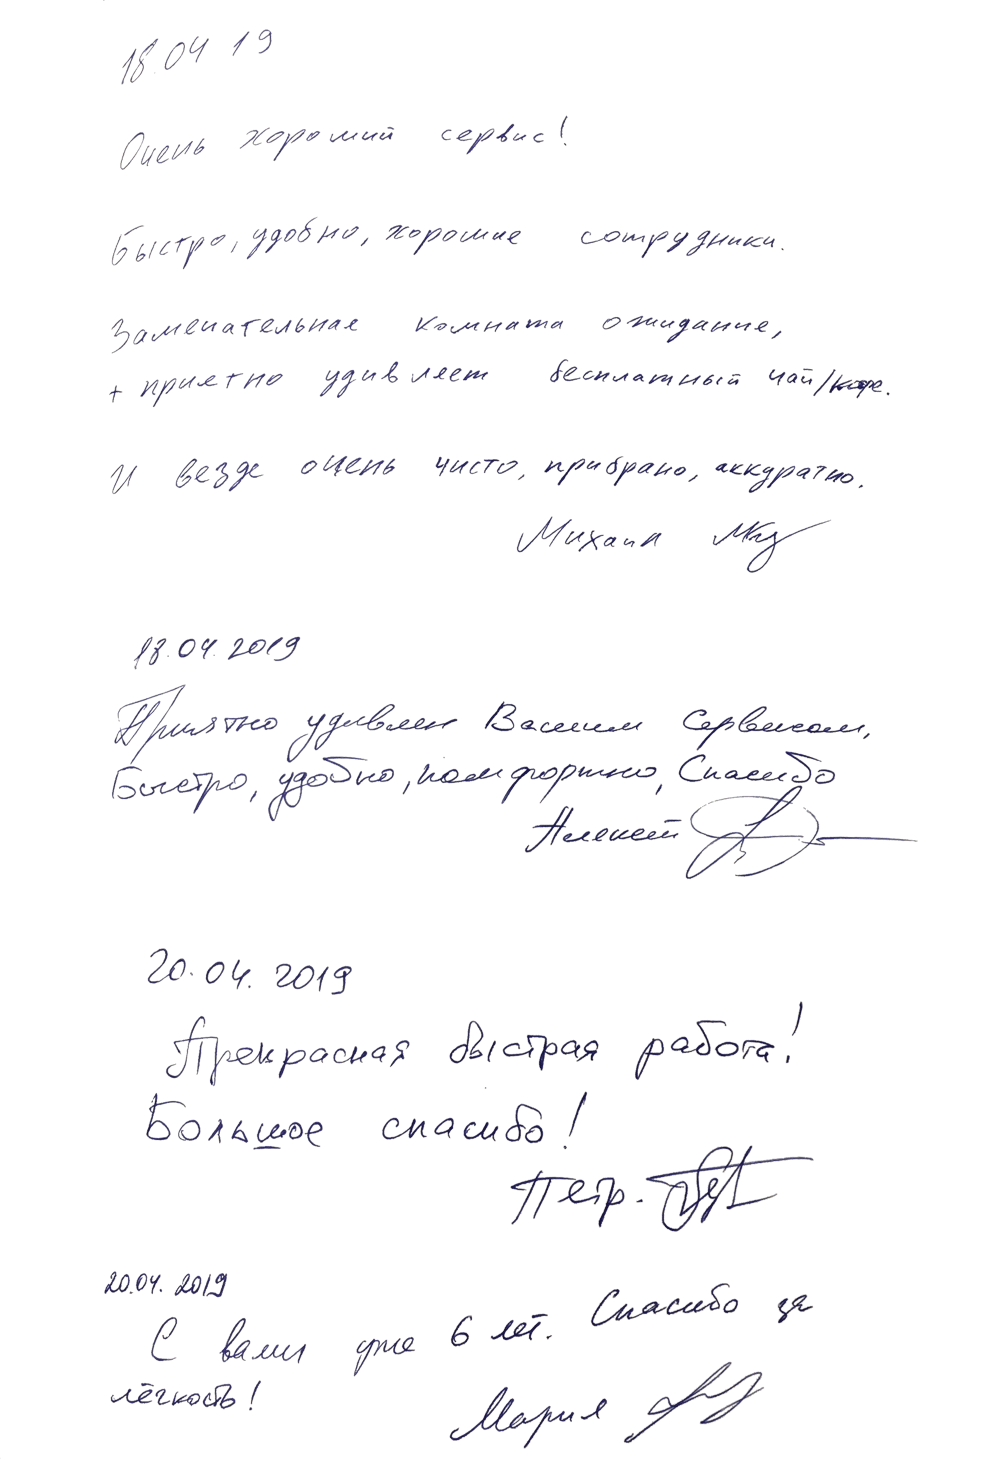 18.04 19
Очень хороший сервис!
Быстро, удобно, хорошие сотрудники.
Замечательная комната ожидание,
+ приятно удивляет бесплатный чай/кофе.
И везде очень чисто, прибрано, аккуратно.
Михаил
18.04.2019
Приятно удивлен Вашим Сервисом,
Быстро, удобно, комфортно, Спасибо
20.04.2019
Прекрасная быстрая работа!
Большое спасибо!
Петр.
20.04.2019
С вами уже 6 лет. Спасибо за
лёгкость!
Мария